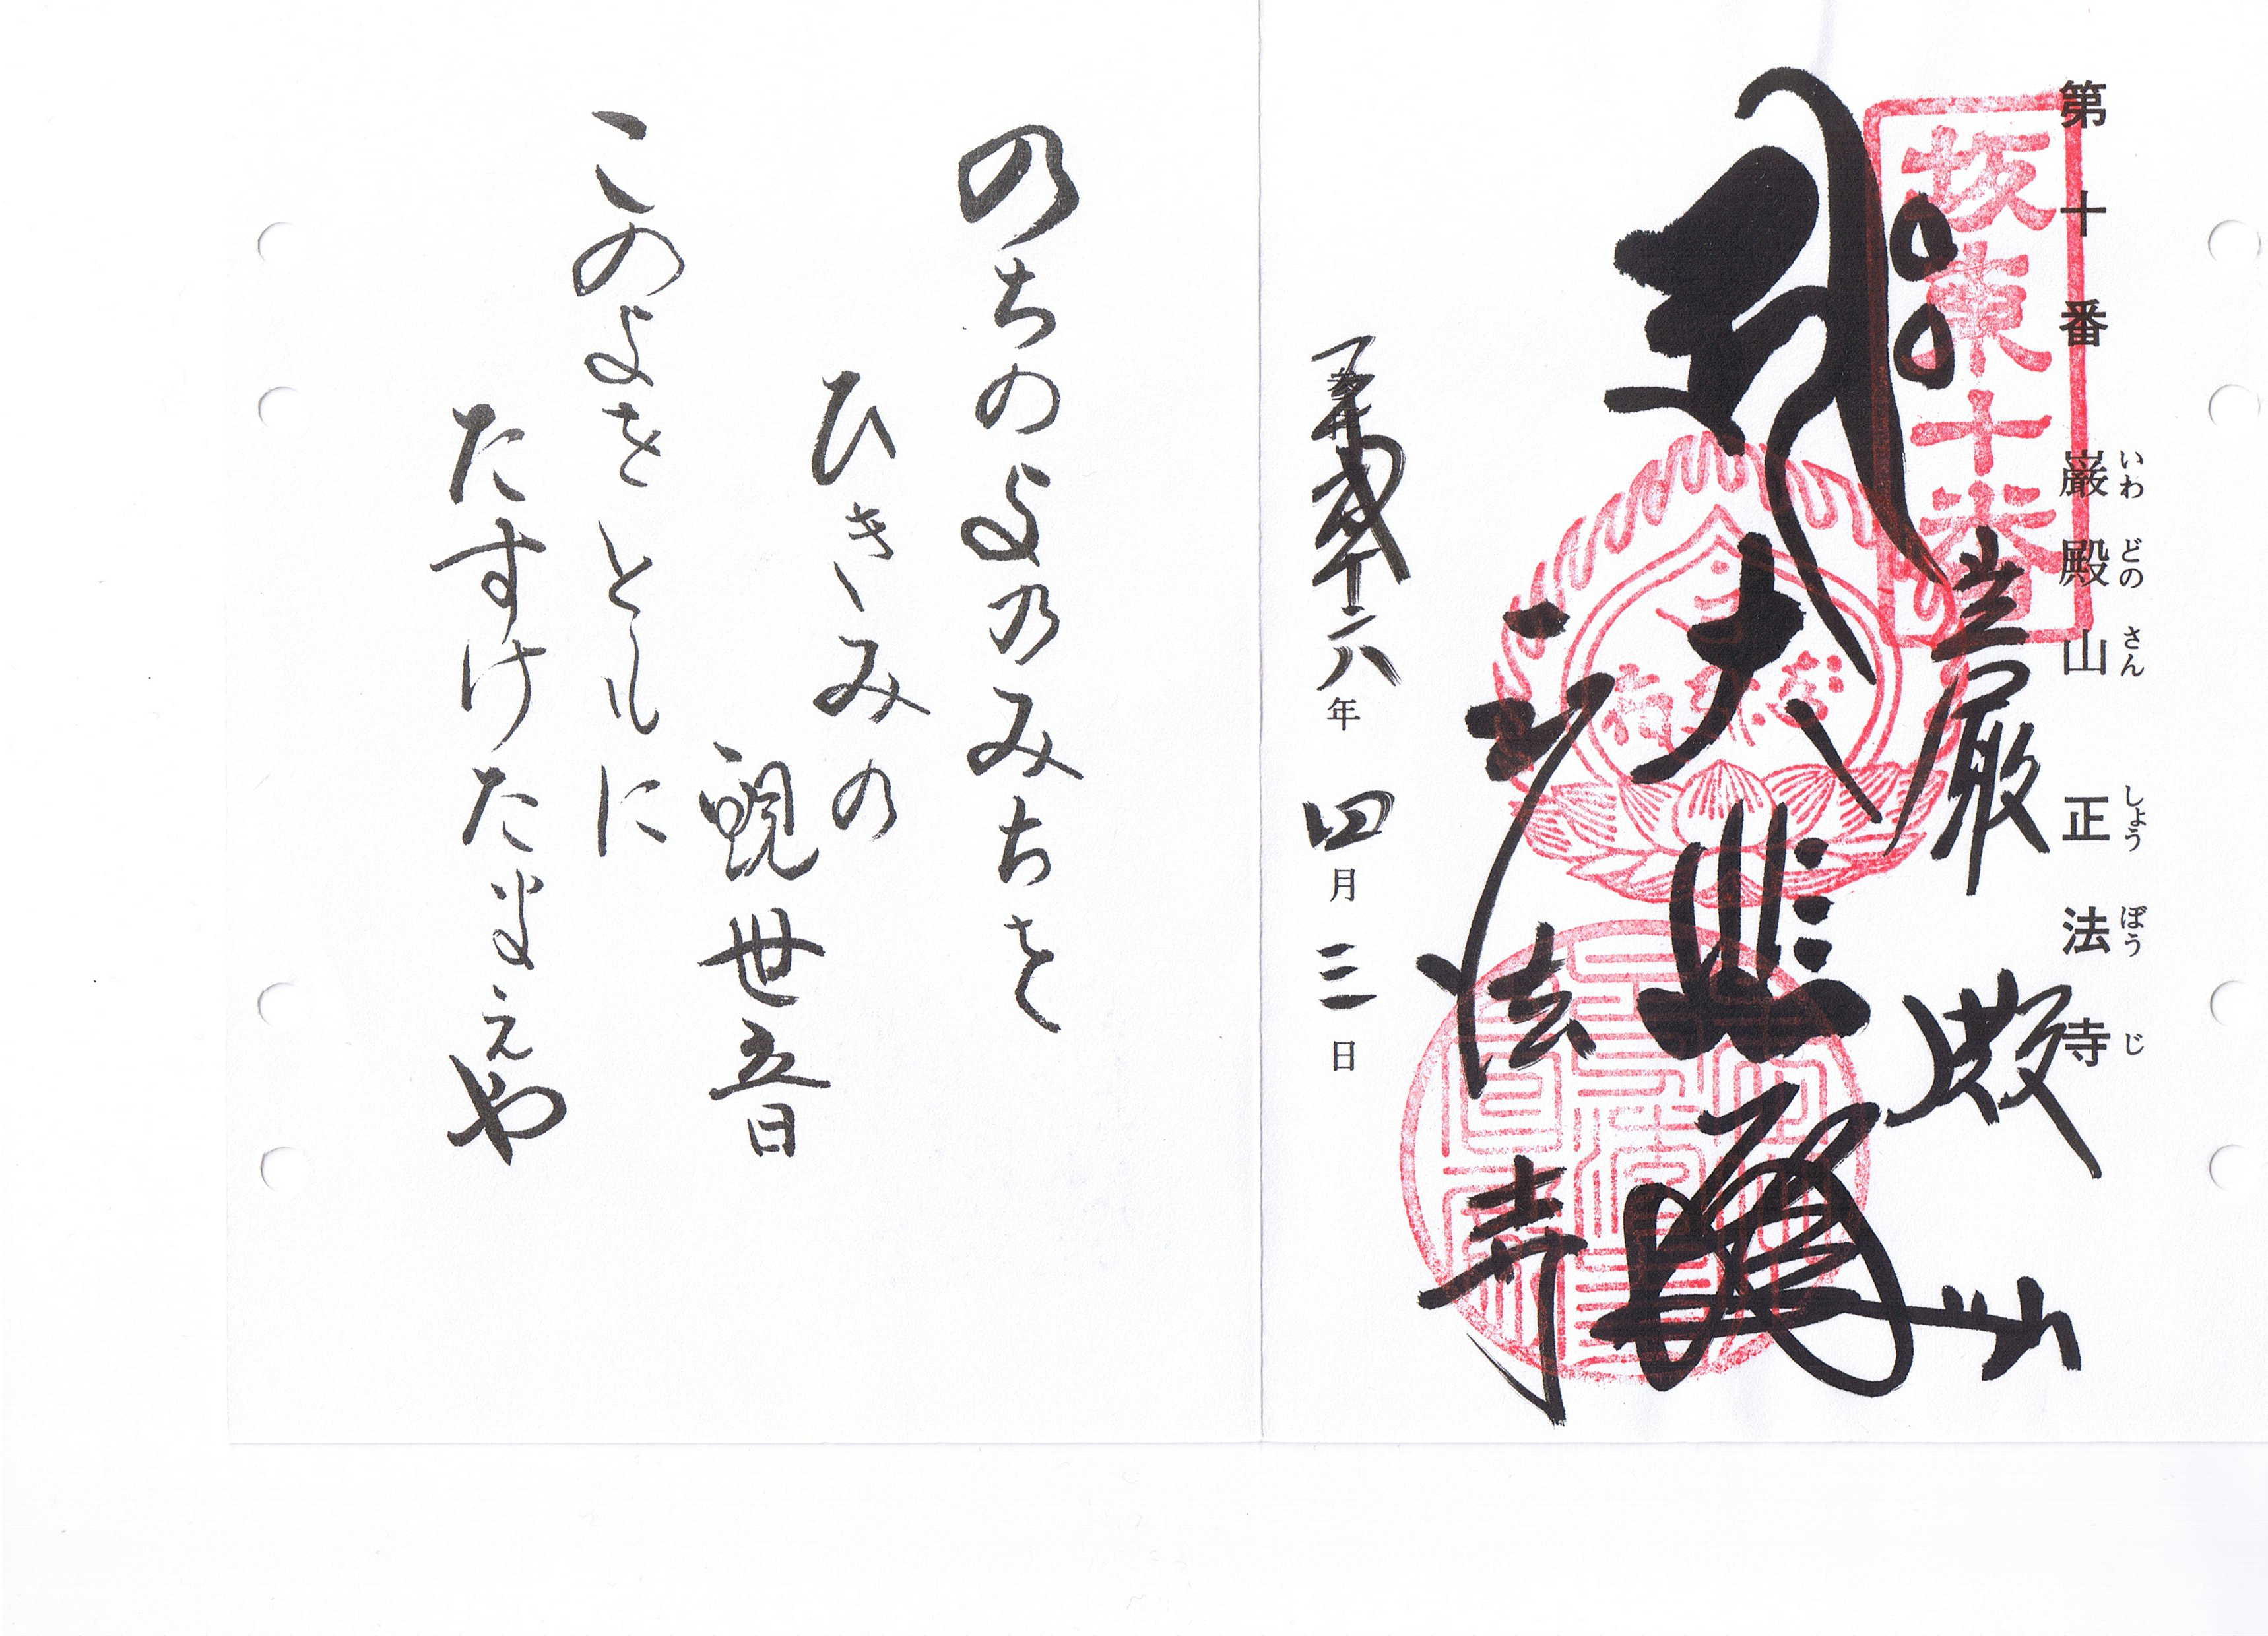 第十番 巌殿山 正法寺
いわ どの さん しょう ぼう じ
坂東十番
岩巌殿山
大悲閣
正法寺
平成二十六年 四月 三日
のちのよのみちを
ひきみの
観世音
このよをともに
たすけたまえや